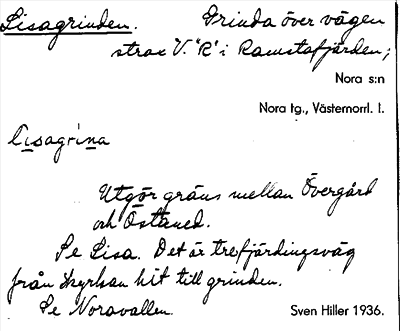 Lisagrinden. Grinda över vägen
strax V. "R" i Ramstafjärden;
Nora s:n
Nora tg., Västernorrl. l.
Lisagrina
Utgör gräns mellan Övergård
och Östaned.
Se Lisa. Det är trefjärdingsväg
från kyrkan hit till grinden.
Se Noravallen.
Sven Hiller 1936.